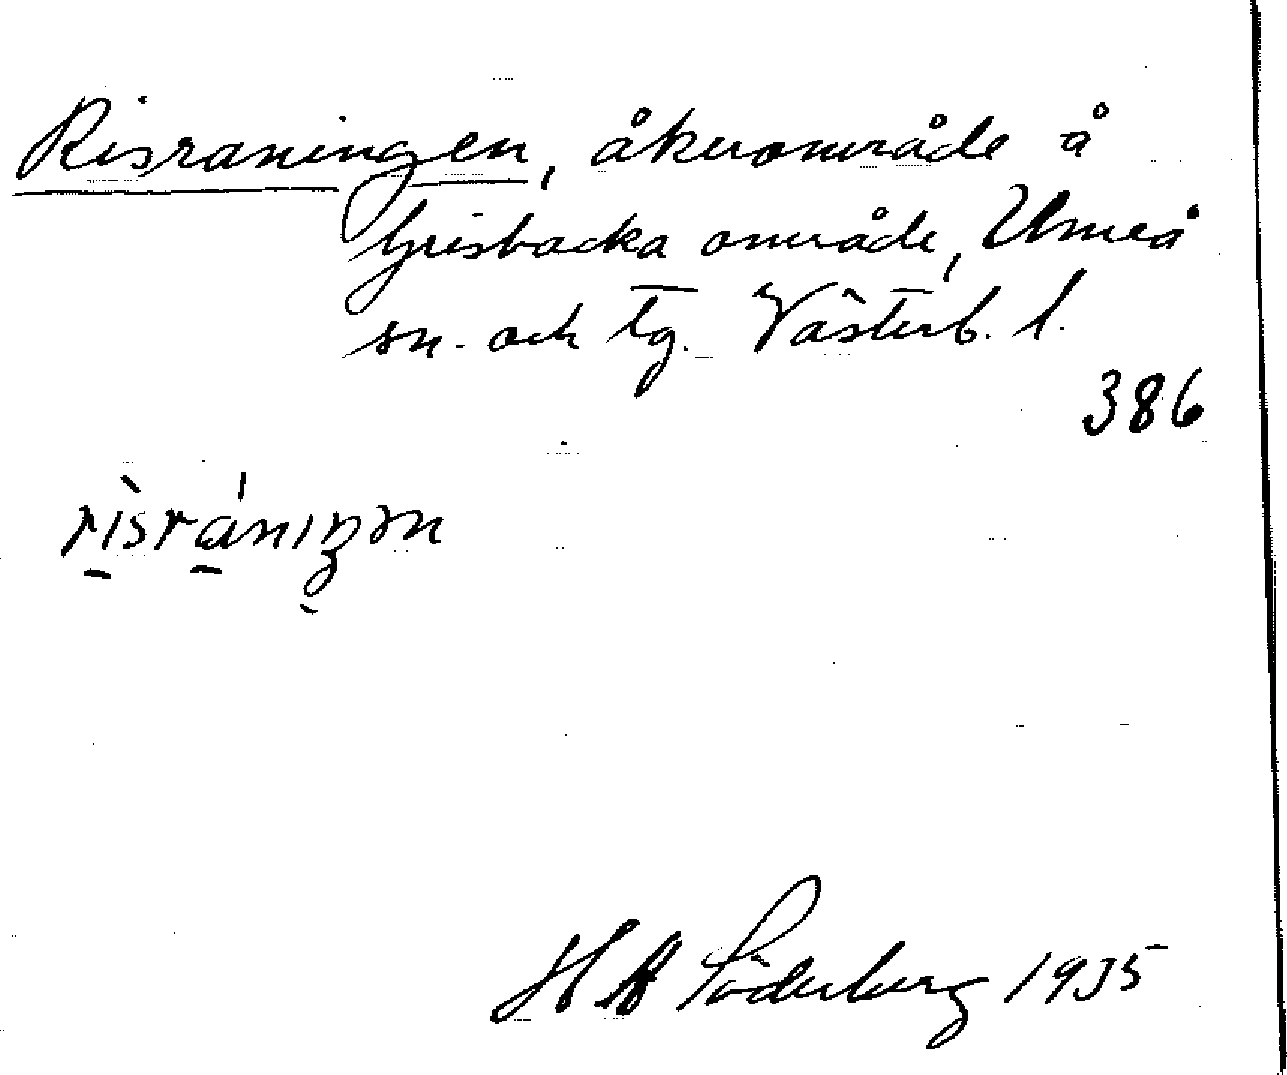 Risraningen, åkerområde å
Grisbacka område, Umeå
sn. och tg. Västerb. l.
386
H Söderberg 1935